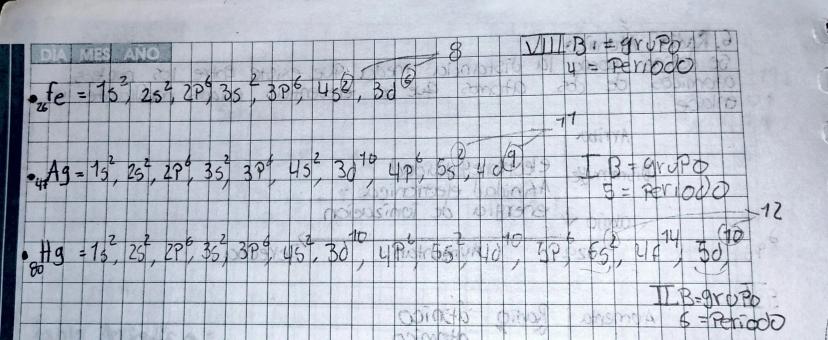 DIA MES ANO
8
VIII B = grupo
4 = Periodo
• ₂₆Fe = 1s², 2s², 2p⁶, 3s², 3p⁶, 4s², 3d⁶
11
• ₄₇Ag = 1s², 2s², 2p⁶, 3s², 3p⁶, 4s², 3d¹⁰, 4p⁶, 5s², 4d⁹
I B = grupo
5 = Periodo
12
• ₈₀Hg = 1s², 2s², 2p⁶, 3s², 3p⁶, 4s², 3d¹⁰, 4p⁶, 5s², 4d¹⁰, 5p⁶, 6s², 4f¹⁴, 5d¹⁰
II B = grupo
6 = Periodo